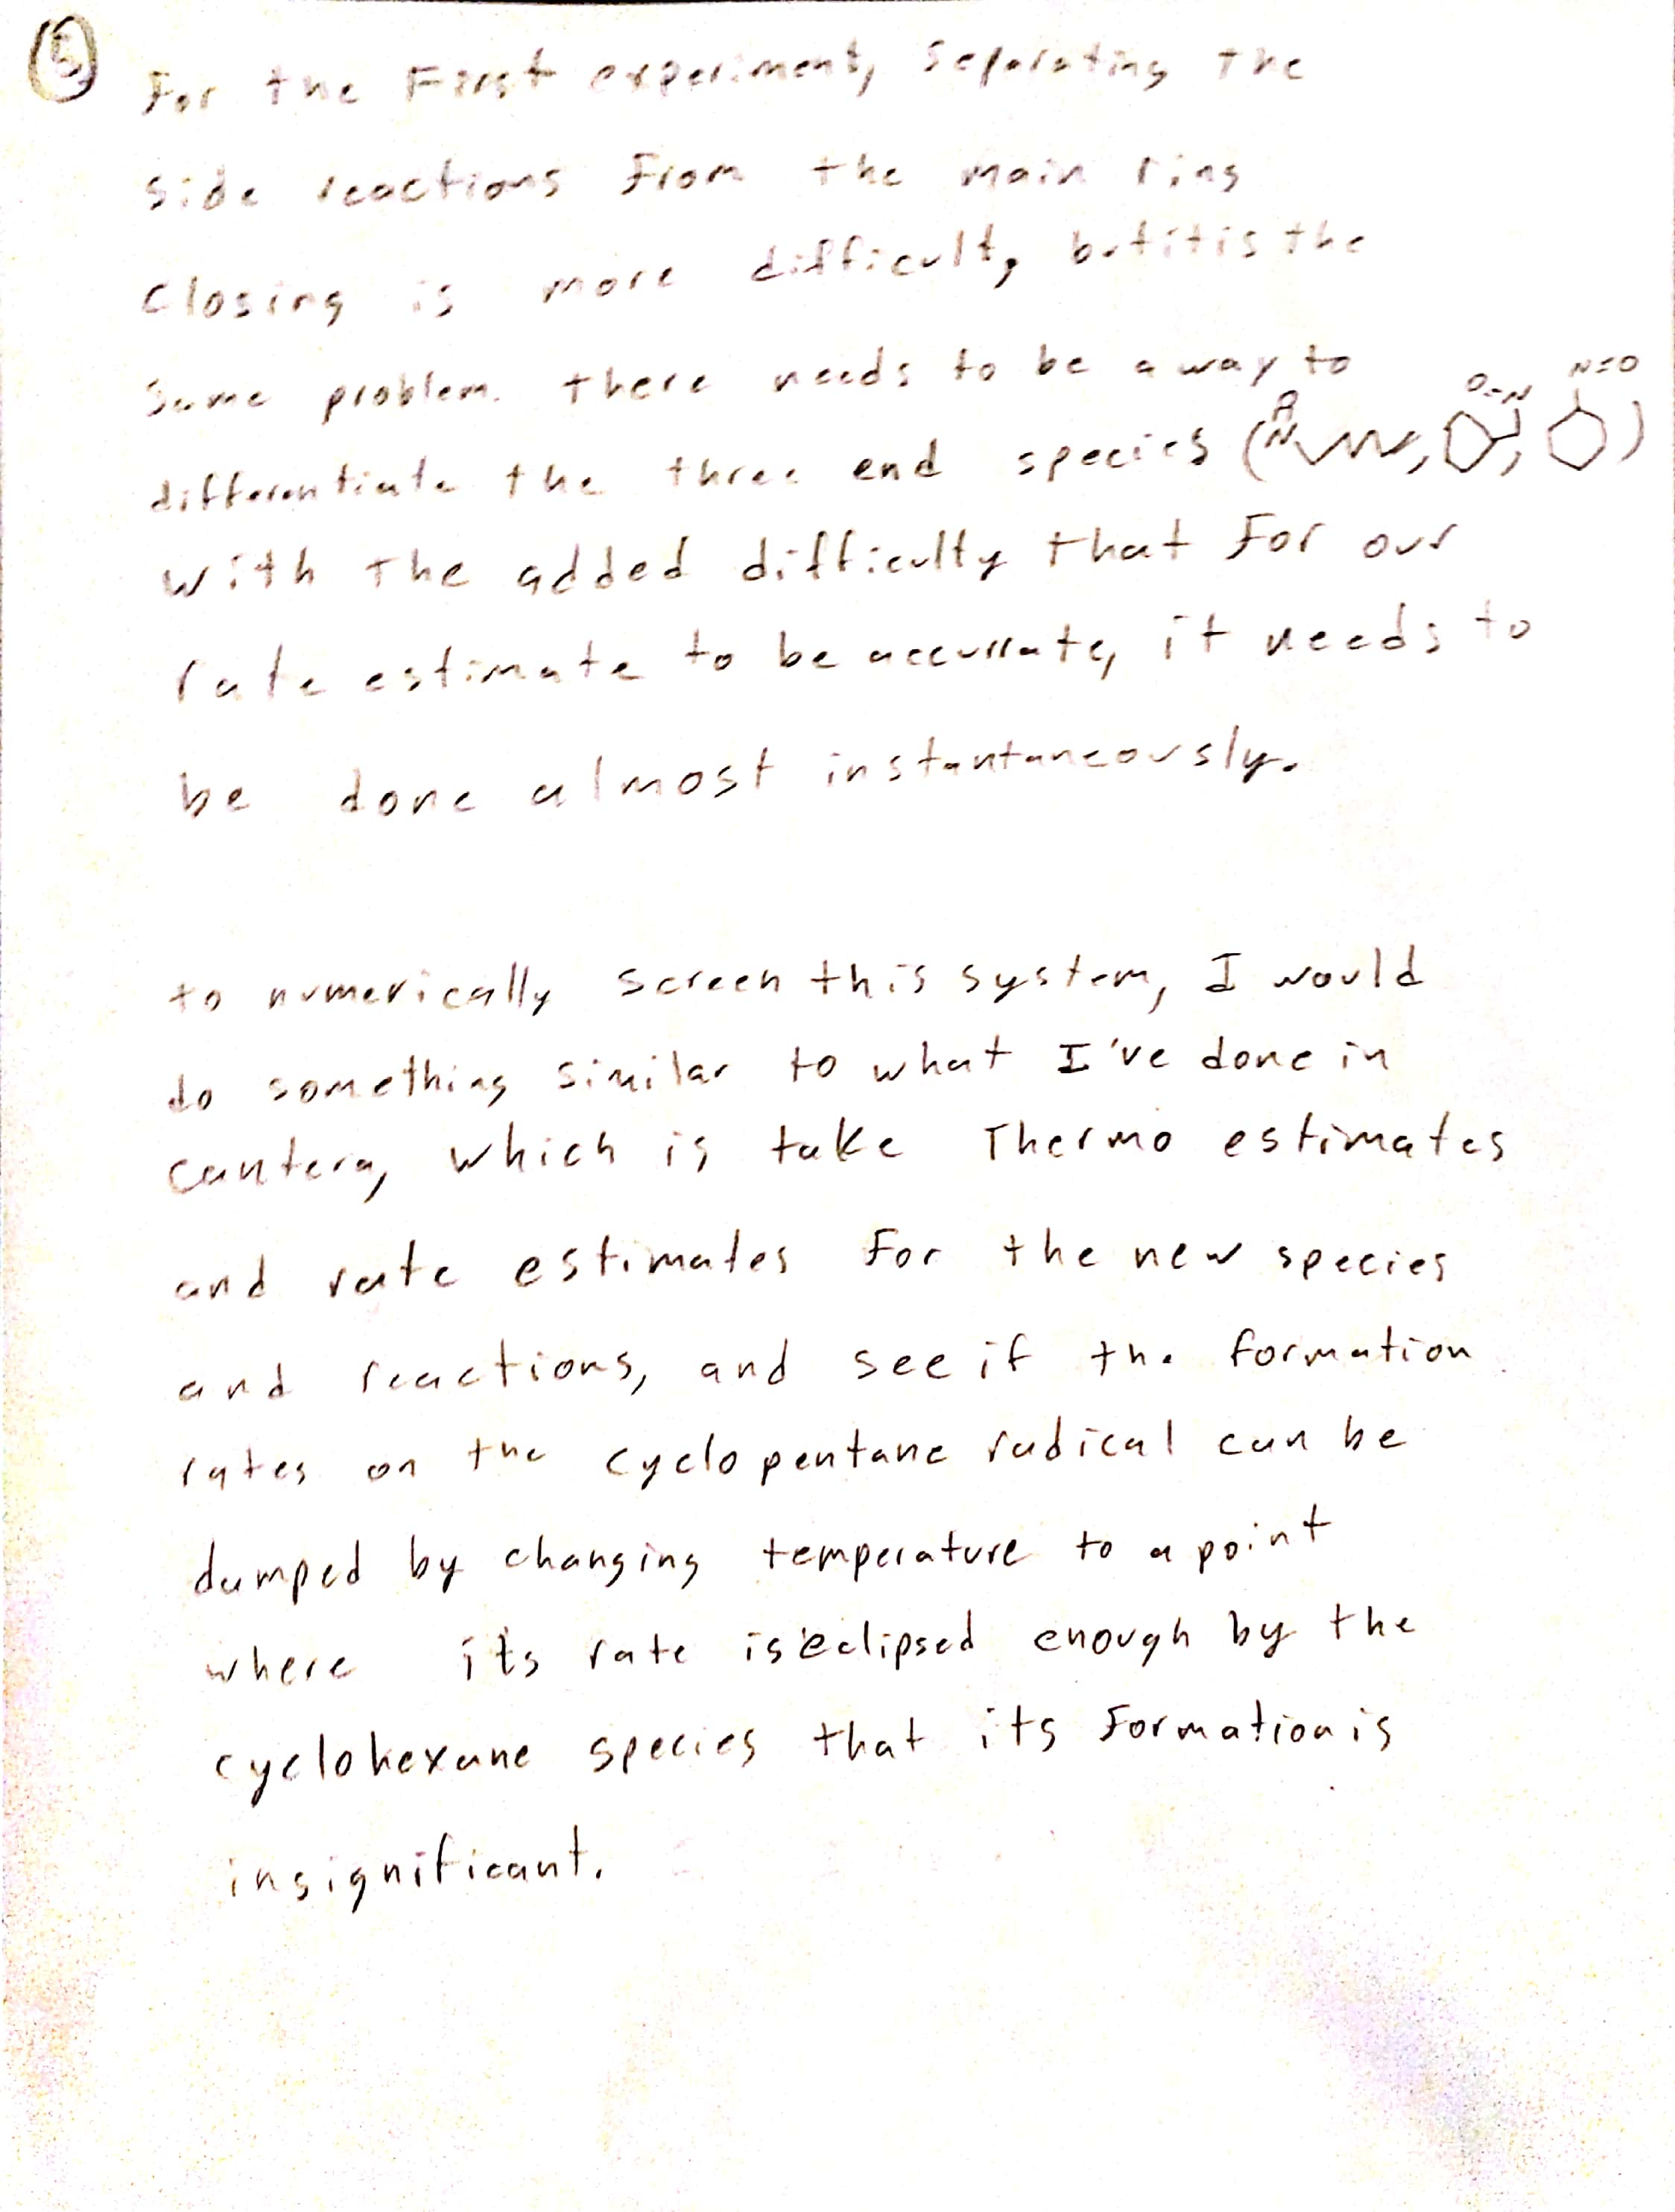 5
For the First experiment, Separating the
side reactions From the main ring
Closing is more difficult, but it is the
Same problem. there needs to be a way to
differentiate the three end species ( , O=N , N=O )
with the added difficulty that For our
rate estimate to be accurrate, it needs to
be done almost instantaneously.
to numerically screen this system, I would
do something similar to what I've done in
cantera, which is take Thermo estimates
and rate estimates For the new species
and reactions, and see if the formation
rates on the cyclopentane radical can be
damped by changing temperature to a point
where its rate is eclipsed enough by the
cyclohexane species that its Formation is
insignificant.